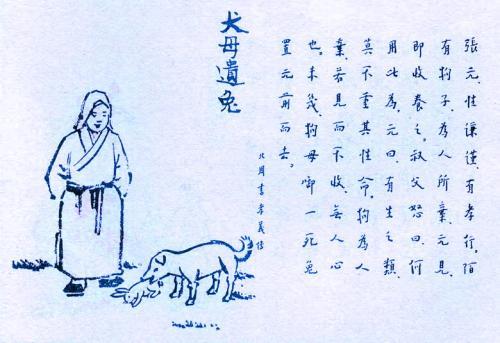 犬母遺兔
張元、性謙謹、有孝行、陌
有狗子、為人所棄、元見、
即收養之、叔父怒曰、何
用此為、元曰、有生之類、
莫不重其性命、狗為人
棄、若見而不收、無人心
也。未幾、狗母啣一死兔
置元前而去。
北周書孝義傳